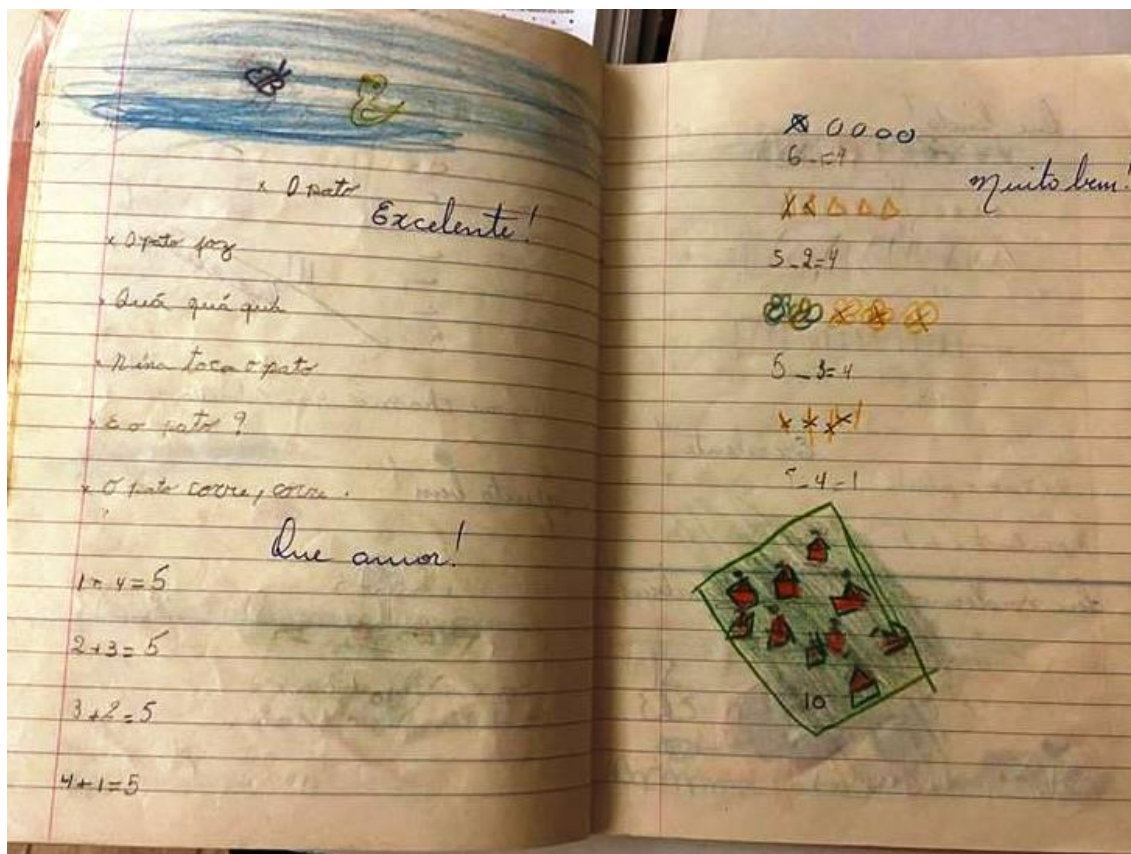 x O pato
Excelente!
x O pato faz
x Quá quá quá
x Nina toca o pato
x E o pato?
x O pato corre, corre.
Que amor!
1+4=5
2+3=5
3+2=5
4+1=5
Muito bem!
5-2=4
5-3=4
4-1
10